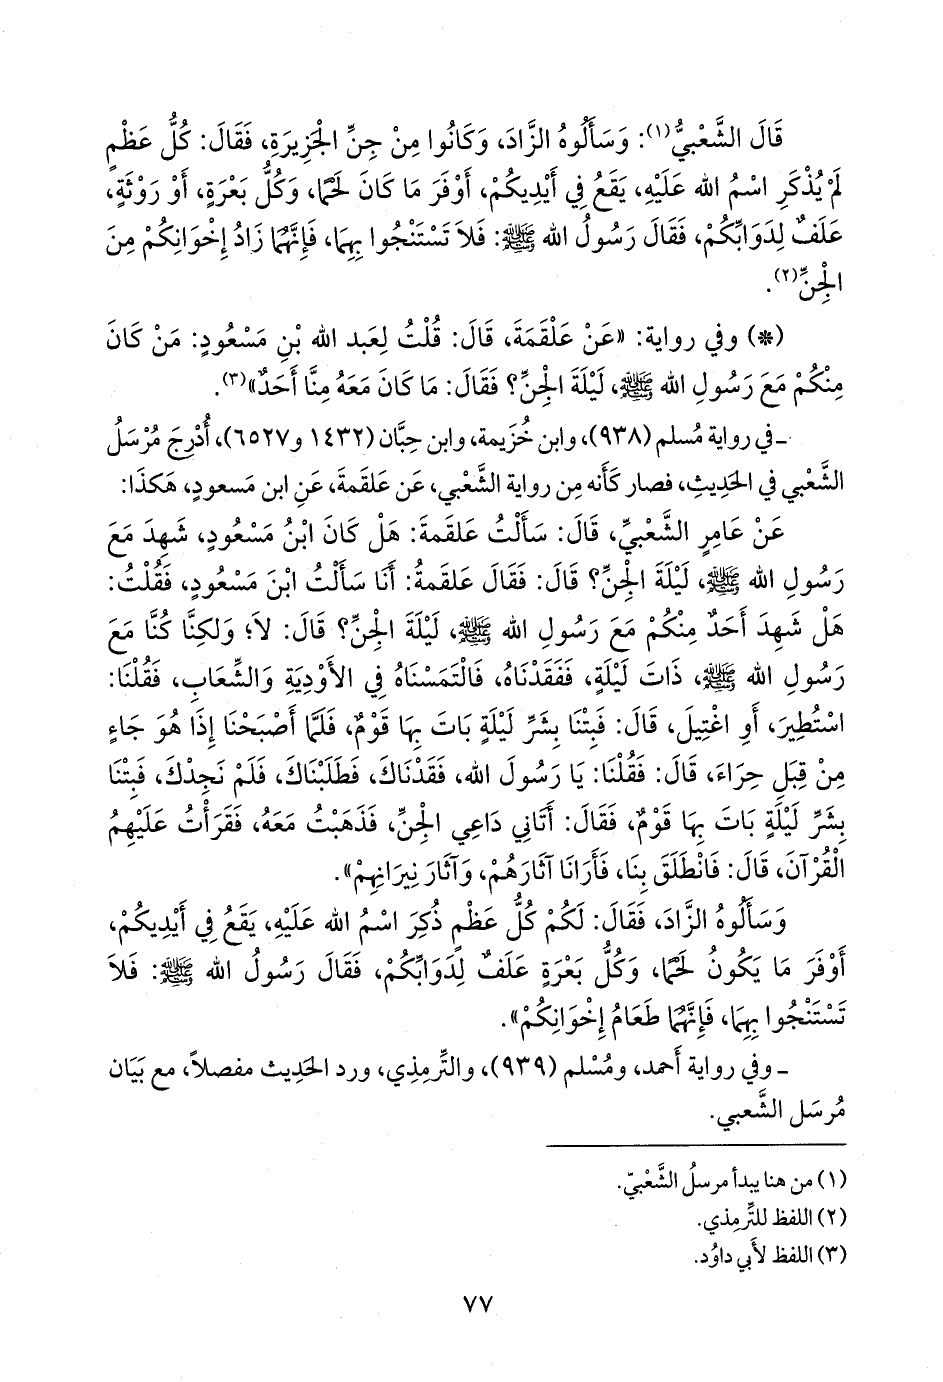 قَالَ الشَّعْبِيُّ(١): وَسَأَلُوهُ الزَّادَ، وَكَانُوا مِنْ جِنِّ الْجَزِيرَةِ، فَقَالَ: كُلُّ عَظْمٍ
لَمْ يُذْكَرِ اسْمُ الله عَلَيْهِ، يَقَعُ فِي أَيْدِيكُمْ، أَوْفَرَ مَا كَانَ لَحْمًا، وَكُلُّ بَعْرَةٍ، أَوْ رَوْثَةٍ،
عَلَفٌ لِدَوَابِّكُمْ، فَقَالَ رَسُولُ الله ﷺ: فَلاَ تَسْتَنْجُوا بِهِمَا، فَإِنَّهُمَا زَادُ إِخْوَانِكُمْ مِنَ
الْجِنِّ(٢).
(*) وفي رواية: «عَنْ عَلْقَمَةَ، قَالَ: قُلْتُ لِعَبد الله بْنِ مَسْعُودٍ: مَنْ كَانَ
مِنْكُمْ مَعَ رَسُولِ الله ﷺ، لَيْلَةَ الْجِنِّ؟ فَقَالَ: مَا كَانَ مَعَهُ مِنَّا أَحَدٌ»(٣).
ـ في رواية مُسلم (٩٣٨)، وابن خُزَيمة، وابن حِبَّان (١٤٣٢ و٦٥٢٧)، أُدْرِجَ مُرْسَلُ
الشَّعْبي في الحَدِيثِ، فصار كَأَنه مِن رواية الشَّعْبي، عَن عَلقمَةَ، عَنِ ابن مَسعودٍ، هَكذَا:
عَنْ عَامِرٍ الشَّعْبيِّ، قَالَ: سَأَلْتُ عَلقمَةَ: هَلْ كَانَ ابْنُ مَسْعُودٍ، شَهِدَ مَعَ
رَسُولِ الله ﷺ، لَيْلَةَ الْجِنِّ؟ قَالَ: فَقَالَ عَلقمَةُ: أَنَا سَأَلْتُ ابْنَ مَسْعُودٍ، فَقُلْتُ:
هَلْ شَهِدَ أَحَدٌ مِنْكُمْ مَعَ رَسُولِ الله ﷺ، لَيْلَةَ الْجِنِّ؟ قَالَ: لاَ؛ وَلكِنَّا كُنَّا مَعَ
رَسُولِ الله ﷺ، ذَاتَ لَيْلَةٍ، فَفَقَدْنَاهُ، فَالْتَمَسْنَاهُ فِي الأَوْدِيَةِ وَالشِّعَابِ، فَقُلْنَا:
اسْتُطِيرَ، أَوِ اغْتِيلَ، قَالَ: فَبِتْنَا بِشَرِّ لَيْلَةٍ بَاتَ بِهَا قَوْمٌ، فَلَمَّا أَصْبَحْنَا إِذَا هُوَ جَاءٍ
مِنْ قِبَلِ حِرَاءَ، قَالَ: فَقُلْنَا: يَا رَسُولَ الله، فَقَدْنَاكَ، فَطَلَبْنَاكَ، فَلَمْ نَجِدْكَ، فَبِتْنَا
بِشَرِّ لَيْلَةٍ بَاتَ بِهَا قَوْمٌ، فَقَالَ: أَتَانِي دَاعِي الْجِنِّ، فَذَهَبْتُ مَعَهُ، فَقَرَأْتُ عَلَيْهِمُ
الْقُرْآنَ، قَالَ: فَانْطَلَقَ بِنَا، فَأَرَانَا آثَارَهُمْ، وَآثَارَ نِيرَانِهِمْ».
وَسَأَلُوهُ الزَّادَ، فَقَالَ: لَكُمْ كُلُّ عَظْمٍ ذُكِرَ اسْمُ الله عَلَيْهِ، يَقَعُ فِي أَيْدِيكُمْ،
أَوْفَرَ مَا يَكُونُ لَحْمًا، وَكُلُّ بَعْرَةٍ عَلَفٌ لِدَوَابِّكُمْ، فَقَالَ رَسُولُ الله ﷺ: فَلاَ
تَسْتَنْجُوا بِهِمَا، فَإِنَّهُمَا طَعَامُ إِخْوَانِكُمْ».
ـ وفي رواية أَحمد، ومُسْلم (٩٣٩)، والتِّرمِذي، ورد الحَدِيث مفصلاً، مع بَيَان
مُرسَل الشَّعبي.
(١) من هنا يبدأ مرسلُ الشَّعْبيّ.
(٢) اللفظ للتِّرمِذي.
(٣) اللفظ لأَبي داوُد.
٧٧